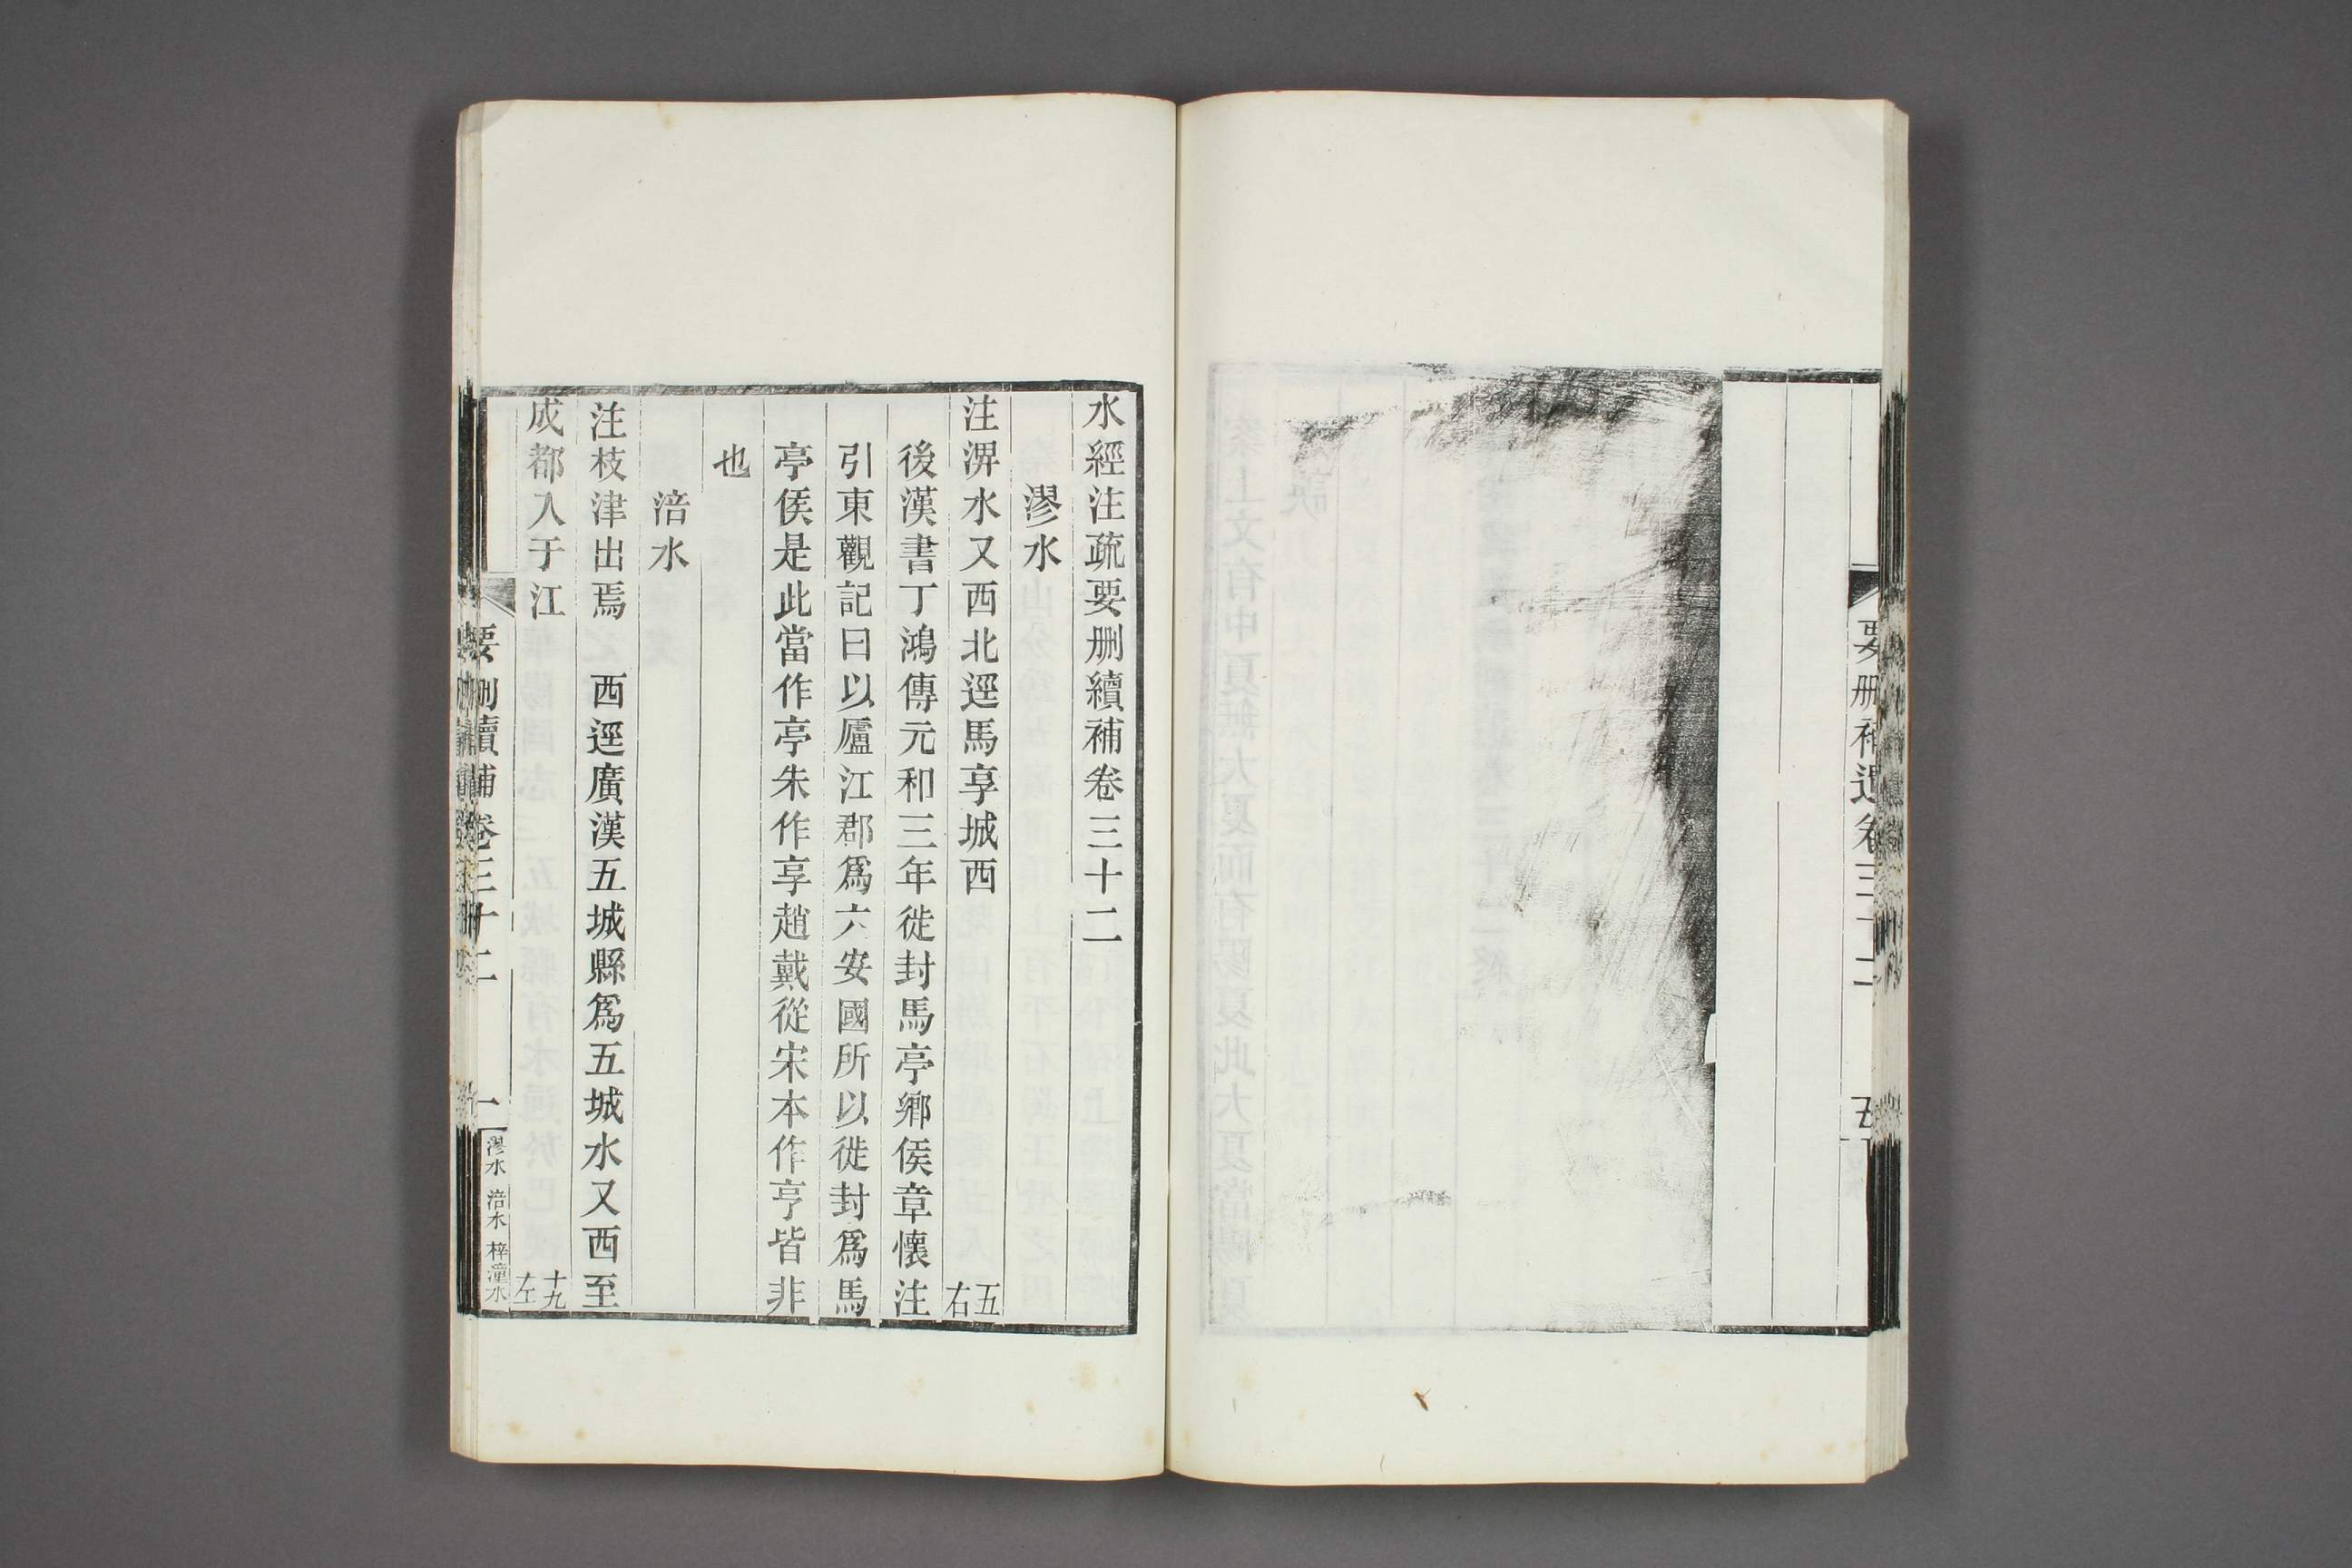 要删補遺卷三十二
五
水經注疏要删續補卷三十二
漻水
注㵒水又西北逕馬享城西 五右
後漢書丁鴻傳元和三年徙封馬亭鄉侯章懷注
引東觀記曰以廬江郡爲六安國所以徙封爲馬
亭侯是此當作亭朱作享趙戴從宋本作亨皆非
也
涪水
注枝津出焉　西逕廣漢五城縣爲五城水又西至
成都入于江 十九左
要删續補卷三十二
一
漻水 涪水 梓潼水